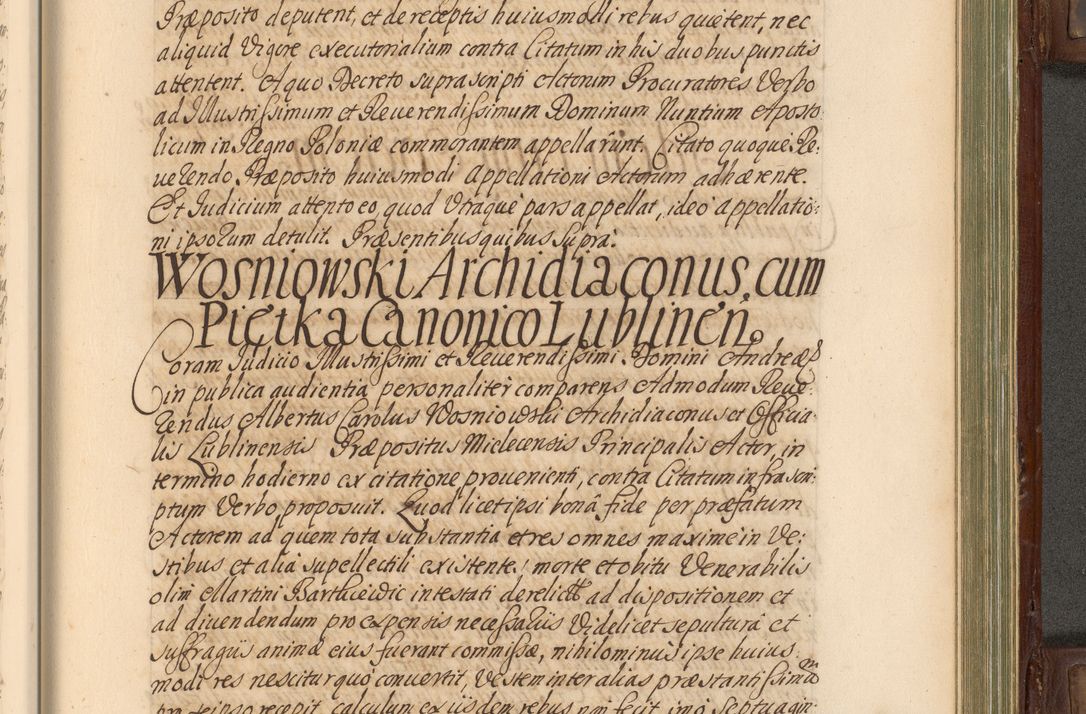 Præposito deputent, et de receptis huiusmodi rebus quietent, nec
aliquid Vigore executorialium contra Citatum in his duobus punctis
attentent. A quo Decreto suprascripti Actorum Procuratores Verbo
ad Illustrissimum et Reuerendissimum Dominum Nuntium Aposto
licum in Regno Poloniæ commorantem appellarunt. Citato quoque Re:
uerendo Præposito huiusmodi Appellationi Actorum adhærente.
Et Judicium attento eo, quod Vtraque pars appellat, ideo appellatio:
ni ipsorum detulit. Præsentibus quibus supra:
Wosniowski Archidiaconus cum
Piętka Canonico Lublinen.
Coram Judicio Illustrissimi et Reuerendissimi Domini Andreæ
in publica audientia personaliter comparens Admodum Reue:
rendus Albertus Carolus Wosniowski Archidiaconus et Officia:
lis Lublinensis Præpositus Mielecensis Principalis Actor, in
termino hodierno ex citatione prouenienti, contra Citatum infrascri:
ptum Verbo proposuit. Quod licet ipsi bonâ fide per præfatum
Actorem ad quem tota substantia et res omnes maxime in Ve:
stibus et alia supellectili existente, morte et obitu Venerabilis
olim Martini intestati derelictæ ad dispositionem et
ad diuendendum pro expensis necessarijs Videlicet sepulturâ et
suffragijs animæ eius fuerant commissæ, nihilominus ipse huius
modi res nescitur quò conuertit, Vestem inter alias præstantissimam
pro se ipso recepit, calculum ex ijsdem rebus non fecit, imò septuagin: